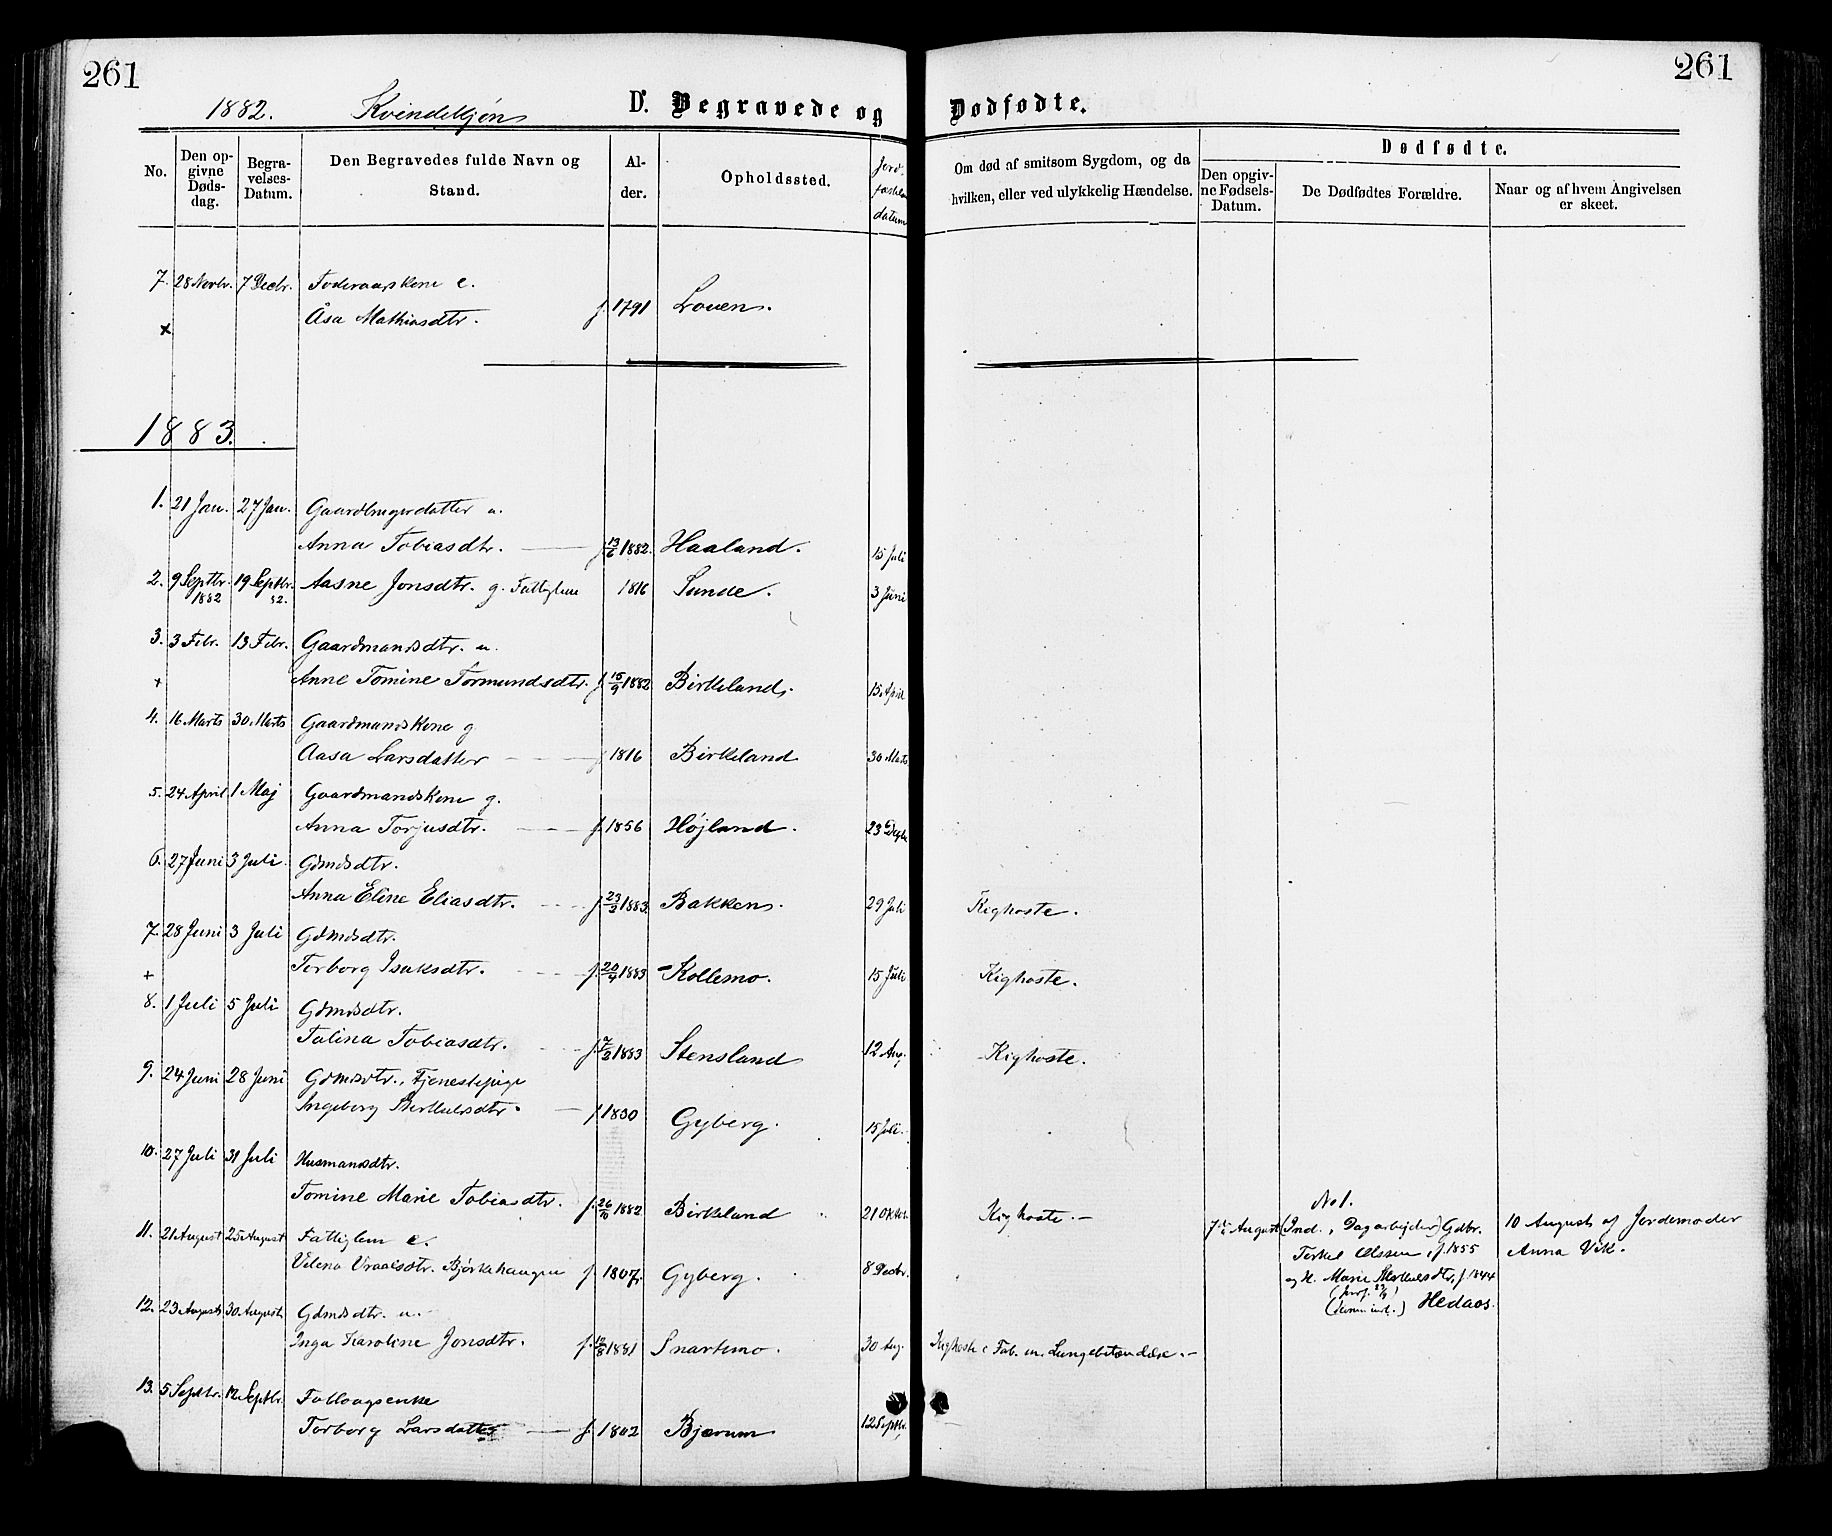 261
261
1882. Kvindekjøn D. Begravede og Dødfødte.
No.
Den opgivne Dødsdag.
Begravelses-Datum.
Den Begravedes fulde Navn og Stand.
Alder.
Opholdssted.
Jord. datum
Om død af smitsom Sygdom, og da hvilken, eller ved ulykkelig Hændelse.
Dødfødte.
Den opgivne Fødsels-Datum.
De Dødfødtes Forældre.
Naar og af hvem Angivelsen er skeet.
7. 28 Novbr. 7 Decbr. Foderaadskone e.
× Åsa Mathiasdtr. f. 1791 Louen.
1883.
1. 21 Jan. 27 Jan. Gaardbrugerdatter u.
Anna Tobiasdtr. f. 13/6 1882. Haaland. 15 Juli
2. 9 Septbr. 19 Septbr. Aasne Jonsdtr. g. Fattiglem 1816 Sunde. 3 Juni
1882 82.
3. 3 Febr. 13 Febr. Gaardmandsdtr. u.
+ Anne Tomine Tormundsdtr. f. 15/9 1882 Birkeland. 15 April
4. 16 Marts 30 Marts Gaardmandskone g.
Aasa Larsdatter f. 1816 Birkeland 30 Marts
5. 24 April 1 Maj Gaardmandskone g.
Anna Torjusdtr. f. 1856 Højland. 23
6. 27 Juni 3 Juli Gdmdsdtr.
Anna Eline Eliasdtr. f. 1883. Bakken. 29 Juli Kighoste.
7. 28 Juni 3 Juli Gdmdsdtr.
+ Torborg Isaksdtr. f. 1883 Kollemo. 15 Juli Kighoste.
8. 1 Juli 5 Juli Gdmdsdtr.
Talina Tobiasdtr. f. 7/2 1883 Stensland 12 Aug. Kighoste.
9. 24 Juni 28 Juni Gdmdsdtr., Tjenestepige
Ingeborg f. 1830 Gyberg. 15 Juli.
10. 27 Juli 31 Juli Husmandsdtr.
Tomine Marie Tobiasdtr. f. 26/10 1882 Birkland 21 Oktbr. Kighoste.
No 1.
7de August (Ind., Dagarbejder) Gdbr. 10 August af Jordemoder
Terkel Olssen, f. 1855 Anna Vik.
og H. Marie f. 1844
Hedaas.
11. 21 August 25 August Fattiglem e.
Vilena Vraalsdtr. Bjørkehaugen f. 1807. Gyberg. 8 Decbr.
12. 23 August 30 August Gdmdsdtr. u.
Inga Karoline Jonsdtr. f. 12/8 1881 Snartemo. 30 Aug. Kighoste Lungebetændelse.
13. 5 Septbr. 12 Septbr.
Torborg Larsdatter f. 1802 Bjærum 12 Septbr.